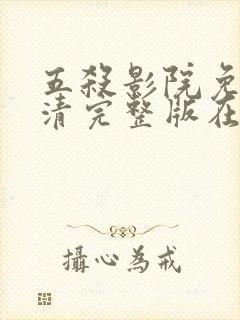 五殺影院免
清完整版在
攝心為戒